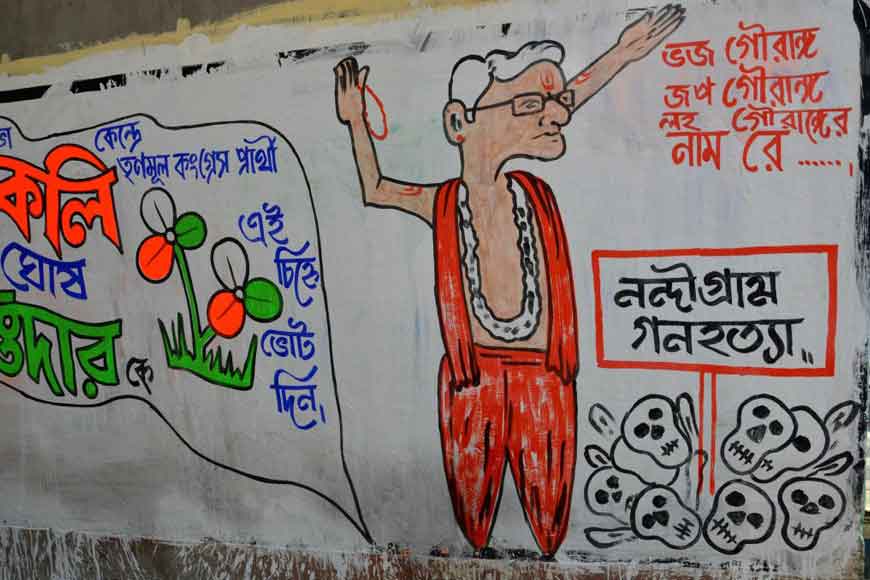 কেন্দ্রে
তৃণমূল কংগ্রেস প্রার্থী
কলি
ঘোষ
দার কে
এই
চিহ্নে
ভোট
দিন।
ভজ গৌরাঙ্গ
জপ গৌরাঙ্গ
লহ গৌরাঙ্গের
নাম রে ......।
নন্দীগ্রাম
গনহত্যা..